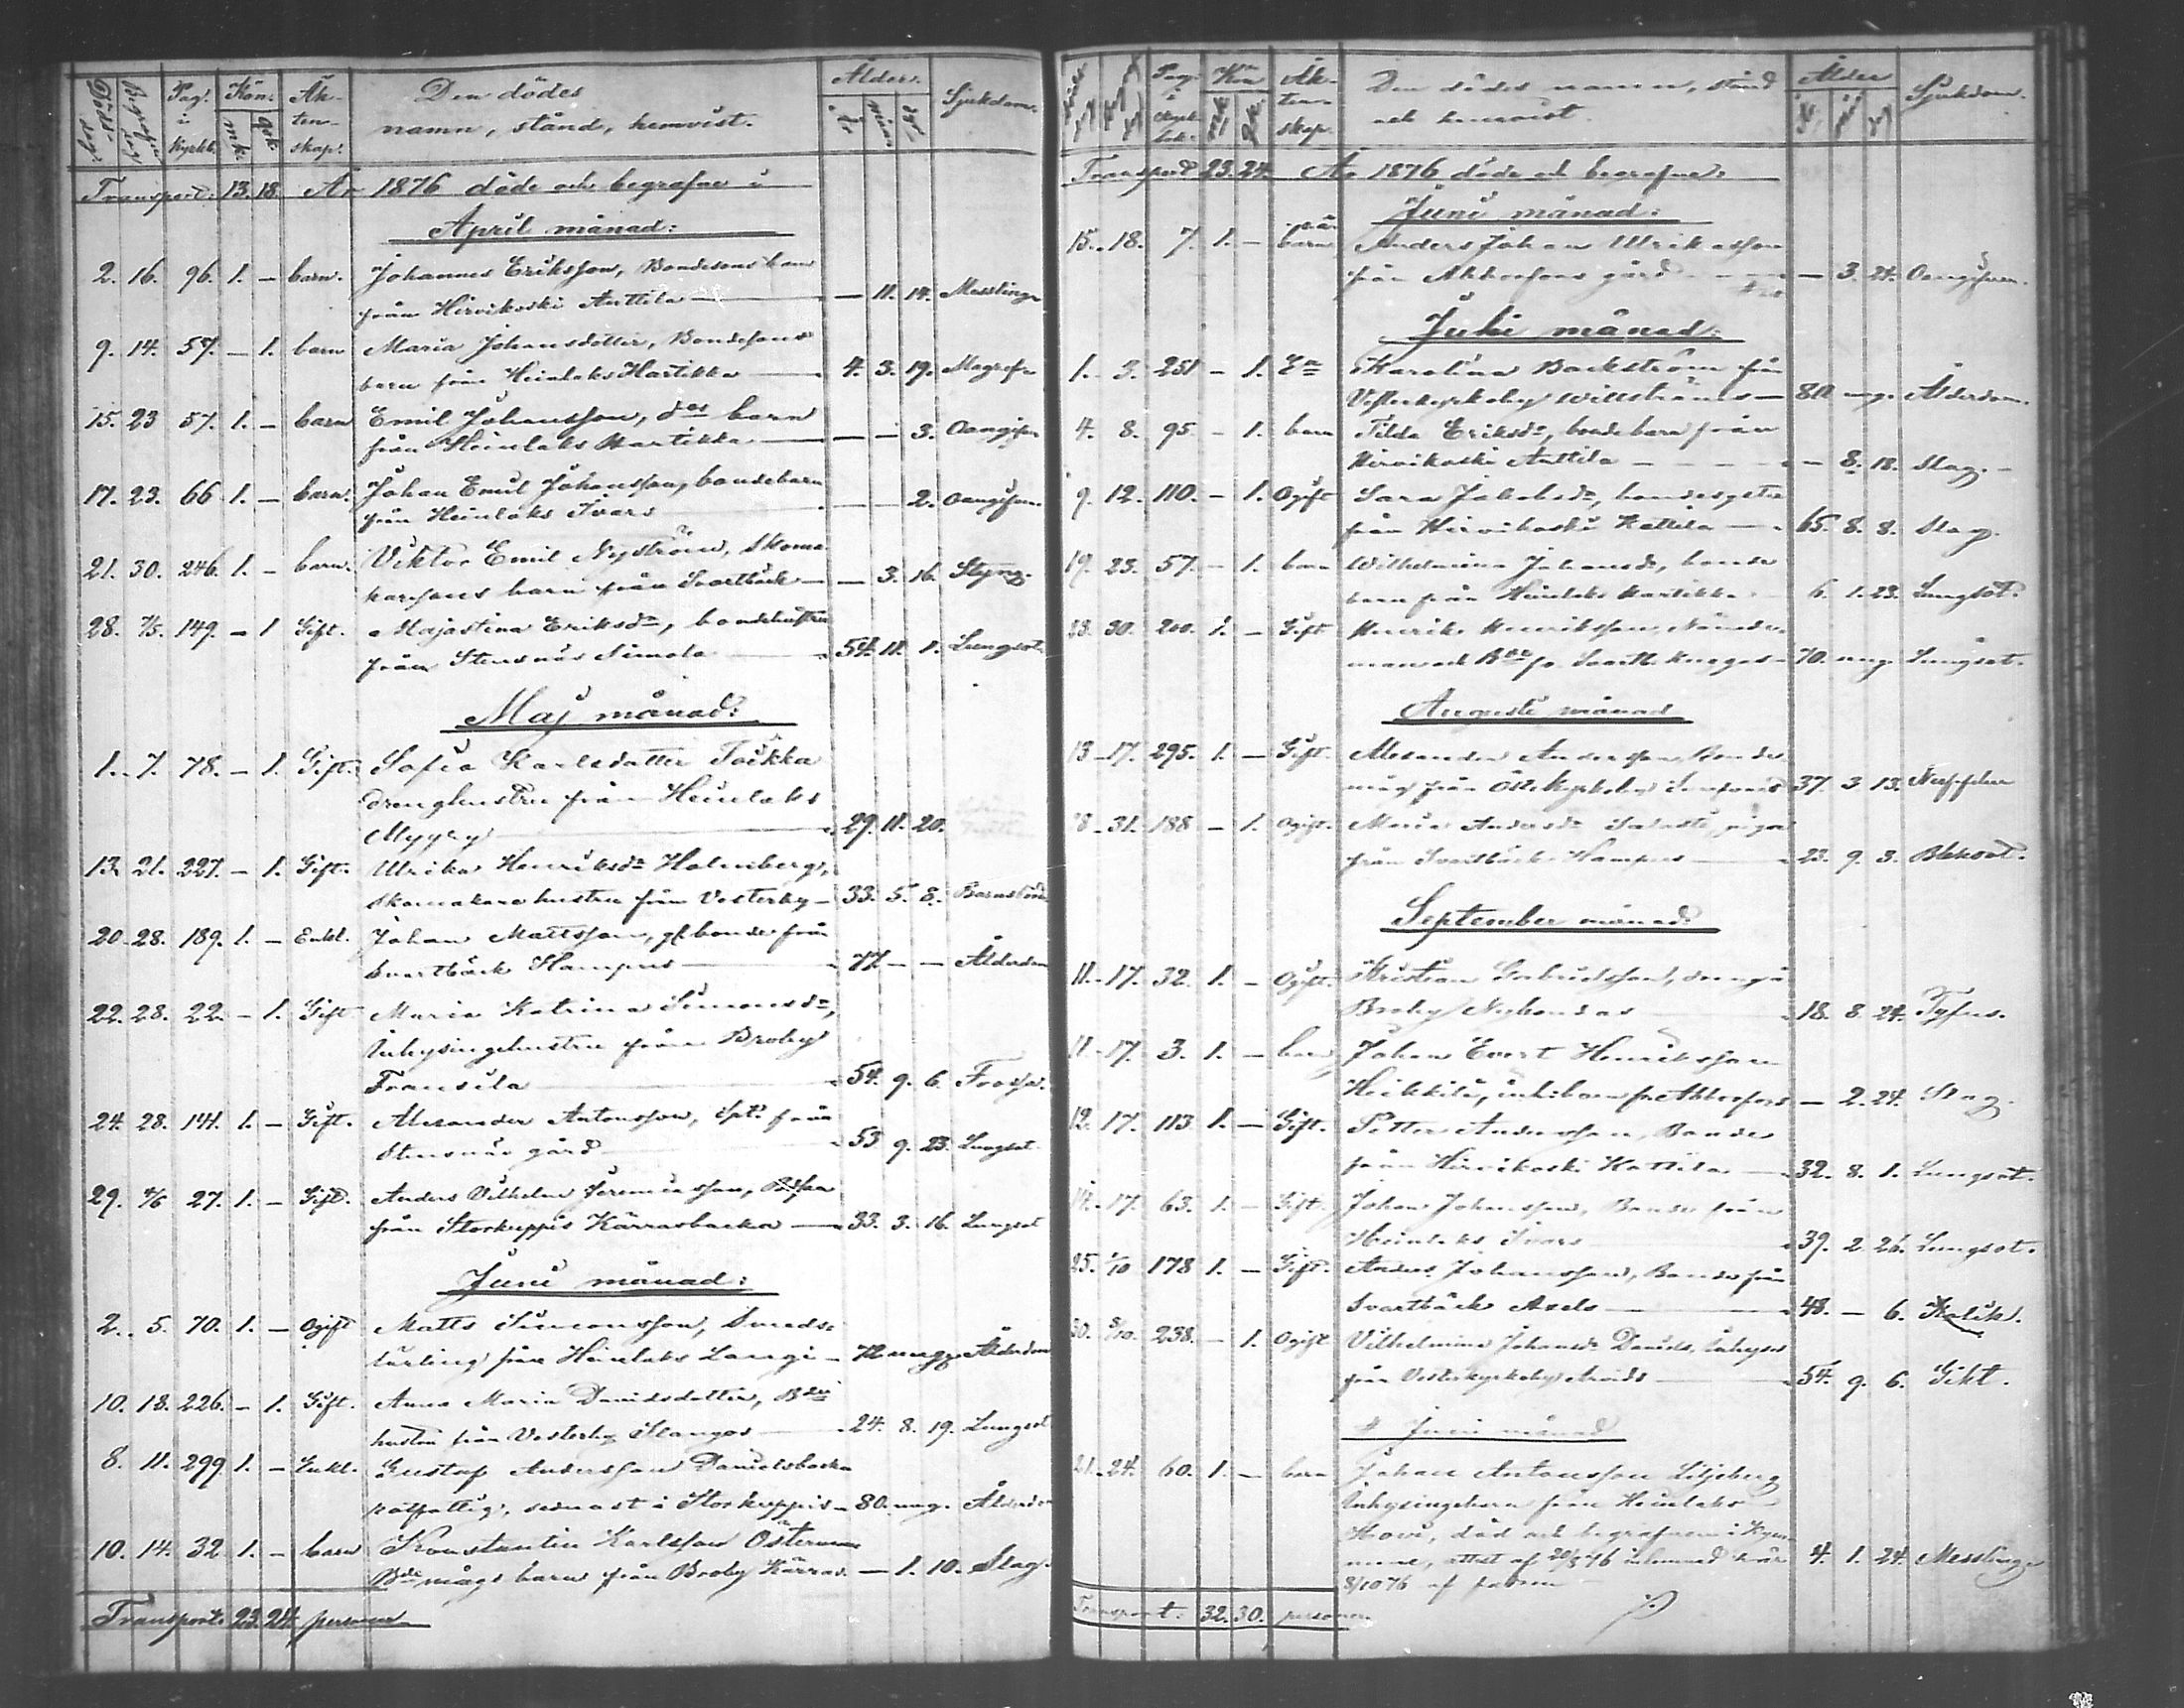 Döds dag. Begrafn. dag Pag. i Kyrkb. Kön. mk. qvk. Äktenskap. Den dödes namn, stånd, hemvist. Ålder. år mån dgr Sjukdom.
Transport: 13. 18. År 1876 döde och begrafne i
April månad:
2. 16. 96. 1. – barn. Johannes Eriksson, Bondesons barn
från Hirvikoski Anttila — — 11. 14. Messling
9. 14. 57. – 1. barn Maria Johansdotter, Bondesons
barn från Heinlaks Hartikka — 4. 3. 19. Magref
15. 23 57. 1. – barn Emil Johansson, d:es barn
från Heinlaks Hartikka — — — 3. Oangifn
17. 23. 66 1. – barn. Johan Emil Johansson, bondebarn
från Heinlaks Ivars — — 2. Oangifven.
21. 30. 246. 1. – barn. Viktor Emil Nyström, Skoma
karesons barn från Svartbäck — — 3. 16. Styng.
28. 7/5. 149. – 1 Gift. Majastina Eriksd:r, bondehustru
från Stensnäs Simola — 54. 11. 1. Lungsot.
Maj månad:
1. 7. 78. – 1. Gift. Sofia Karlsdotter Toikka
drenghustru från Heinlaks
Myyry — 29. 11. 20.
13. 21. 227. – 1. Gift. Ulrika Henriksd:r Holmberg,
Skomakare hustru från Vesterby – 33. 5. 8. Barnsbörd
20. 28. 189. 1. – Enkl. Johan Mattsson, gl bonde från
Svartbäck Hampus — 77. – – Ålderdom
22. 28. 22. – 1. Gift Maria Katrina Simonsd:r,
Inhysingehustru från Broby
Fransila — 54. 9. 6. Frossa.
24. 28. 141. 1. – Gift. Alexander Antonsson, Spt: från
Stensnäs gård — 53 9. 23. Lungsot.
29. 4/6 27. 1. – Gift. Anders Vilhelm Jeremiasson,
från Storkuppis Kärrasbacka — 33. 3. 16. Lungsot
Juni månad:
2. 5. 70. 1. – Ogift Matts Simonsson, Smeds-
lärling från Heinlaks Langi – 72 ungz. Ålderdom
10. 18. 226. – 1. Gift. Anna Maria Davidsdotter, B:de
hustru från Vesterby Slangos — 24. 8. 19. Lungsot
8. 11. 299. 1. – Enkl. Gustaf Andersson Danielsbacka
rotfattig, senast i Storkuppis – 80. ung. Ålderdom
10. 14. 32. 1. – barn Konstantin Karlsson Österman
B:de mågs barn från Broby Kärras. — 1. 10. Slag.
Transport: 23. 24. personer
Pag. i Kyrk bok. Kön mk. qvk. Äktenskap. Den dödes namn, stånd och hemvist. Ålder år mån Sjukdom.
Transport 23. 24. År 1876 döde och begrafne:
Juni månad:
15. 18. 7. 1. – barn Anders Johan Ulriksson
från Abborfors gård — — 3. 24. Oangifven.
Juli månad:
1. 3. 251 – 1. E:a Karolina Backström från
Vesterkyrkoby Willströms – 80 ung. Ålderdom.
4. 8. 95. – 1. barn Tilda Eriksd:r, bondebarn från
Hirvikoski Anttila – – 8. 18. Slag.
9. 12. 110. – 1. Ogift Sara Jakobsd:r,
från Hirvikoski Kattila — 65. 8. 8. Slag.
19. 23. 57. – 1. barn Wilhelmina Johansd:r, bonde
barn från Heinlaks Hartikka. 6. 1. 23. Lungsot.
23. 30. 200. 1. – Gift Henrik Henriksson, Nämde-
man och B:de fr Svartb. Knaggas – 70. ung. Lungsot.
Augusti månad
13. 17. 295. 1. – Gift. Alexander Andersson, Bonde
måg från Österkyrkoby 37. 3 13. Nerffeber
31. 188 – 1. Ogift. Maria Andersd:r piga
från Svartbäck Hampus — 23. 9. 3. Bleksot.
September månad:
11. 17. 32. 1. – Ogift. Kristian Gabrielsson, dreng i
Broby Nybondas — 18. 8. 24. Tyfus.
11. 17. 3. 1. – barn Johan Evert Henriksson
Heikkilä, inh: barn fr Abborfors – 2. 24. Slag.
12. 17. 113 1. – Gift. Petter Andersson, Bonde
från Hirvikoski Kattila — 32. 8. 1. Lungsot.
14. 17. 63. 1. – Gift. Johan Johansson, Bonde från
Heinlaks Ivars 39. 2. 26. Lungsot.
25. 1/10 178 1. – Gift. Anders Johansson, Bonde från
Svartbäck Axels — 48. – 6. Kolik.
30. 8/10. 238. – 1. Ogift Vilhelmina Johansd:r Davids, inhyses
från Vesterkyrkoby — 54. 9. 6. Gikt.
# Juni månad
21. 24. 60. 1. – barn Johan Antonsson Liljeberg
Inhysingebarn från Heinlaks
Hovi, död och begrafven i Kym-
mene, attest af 20/8 76 inlemnad här 4. 1. 24. Messling
8/10 76 af
Transport: 32. 30. personer